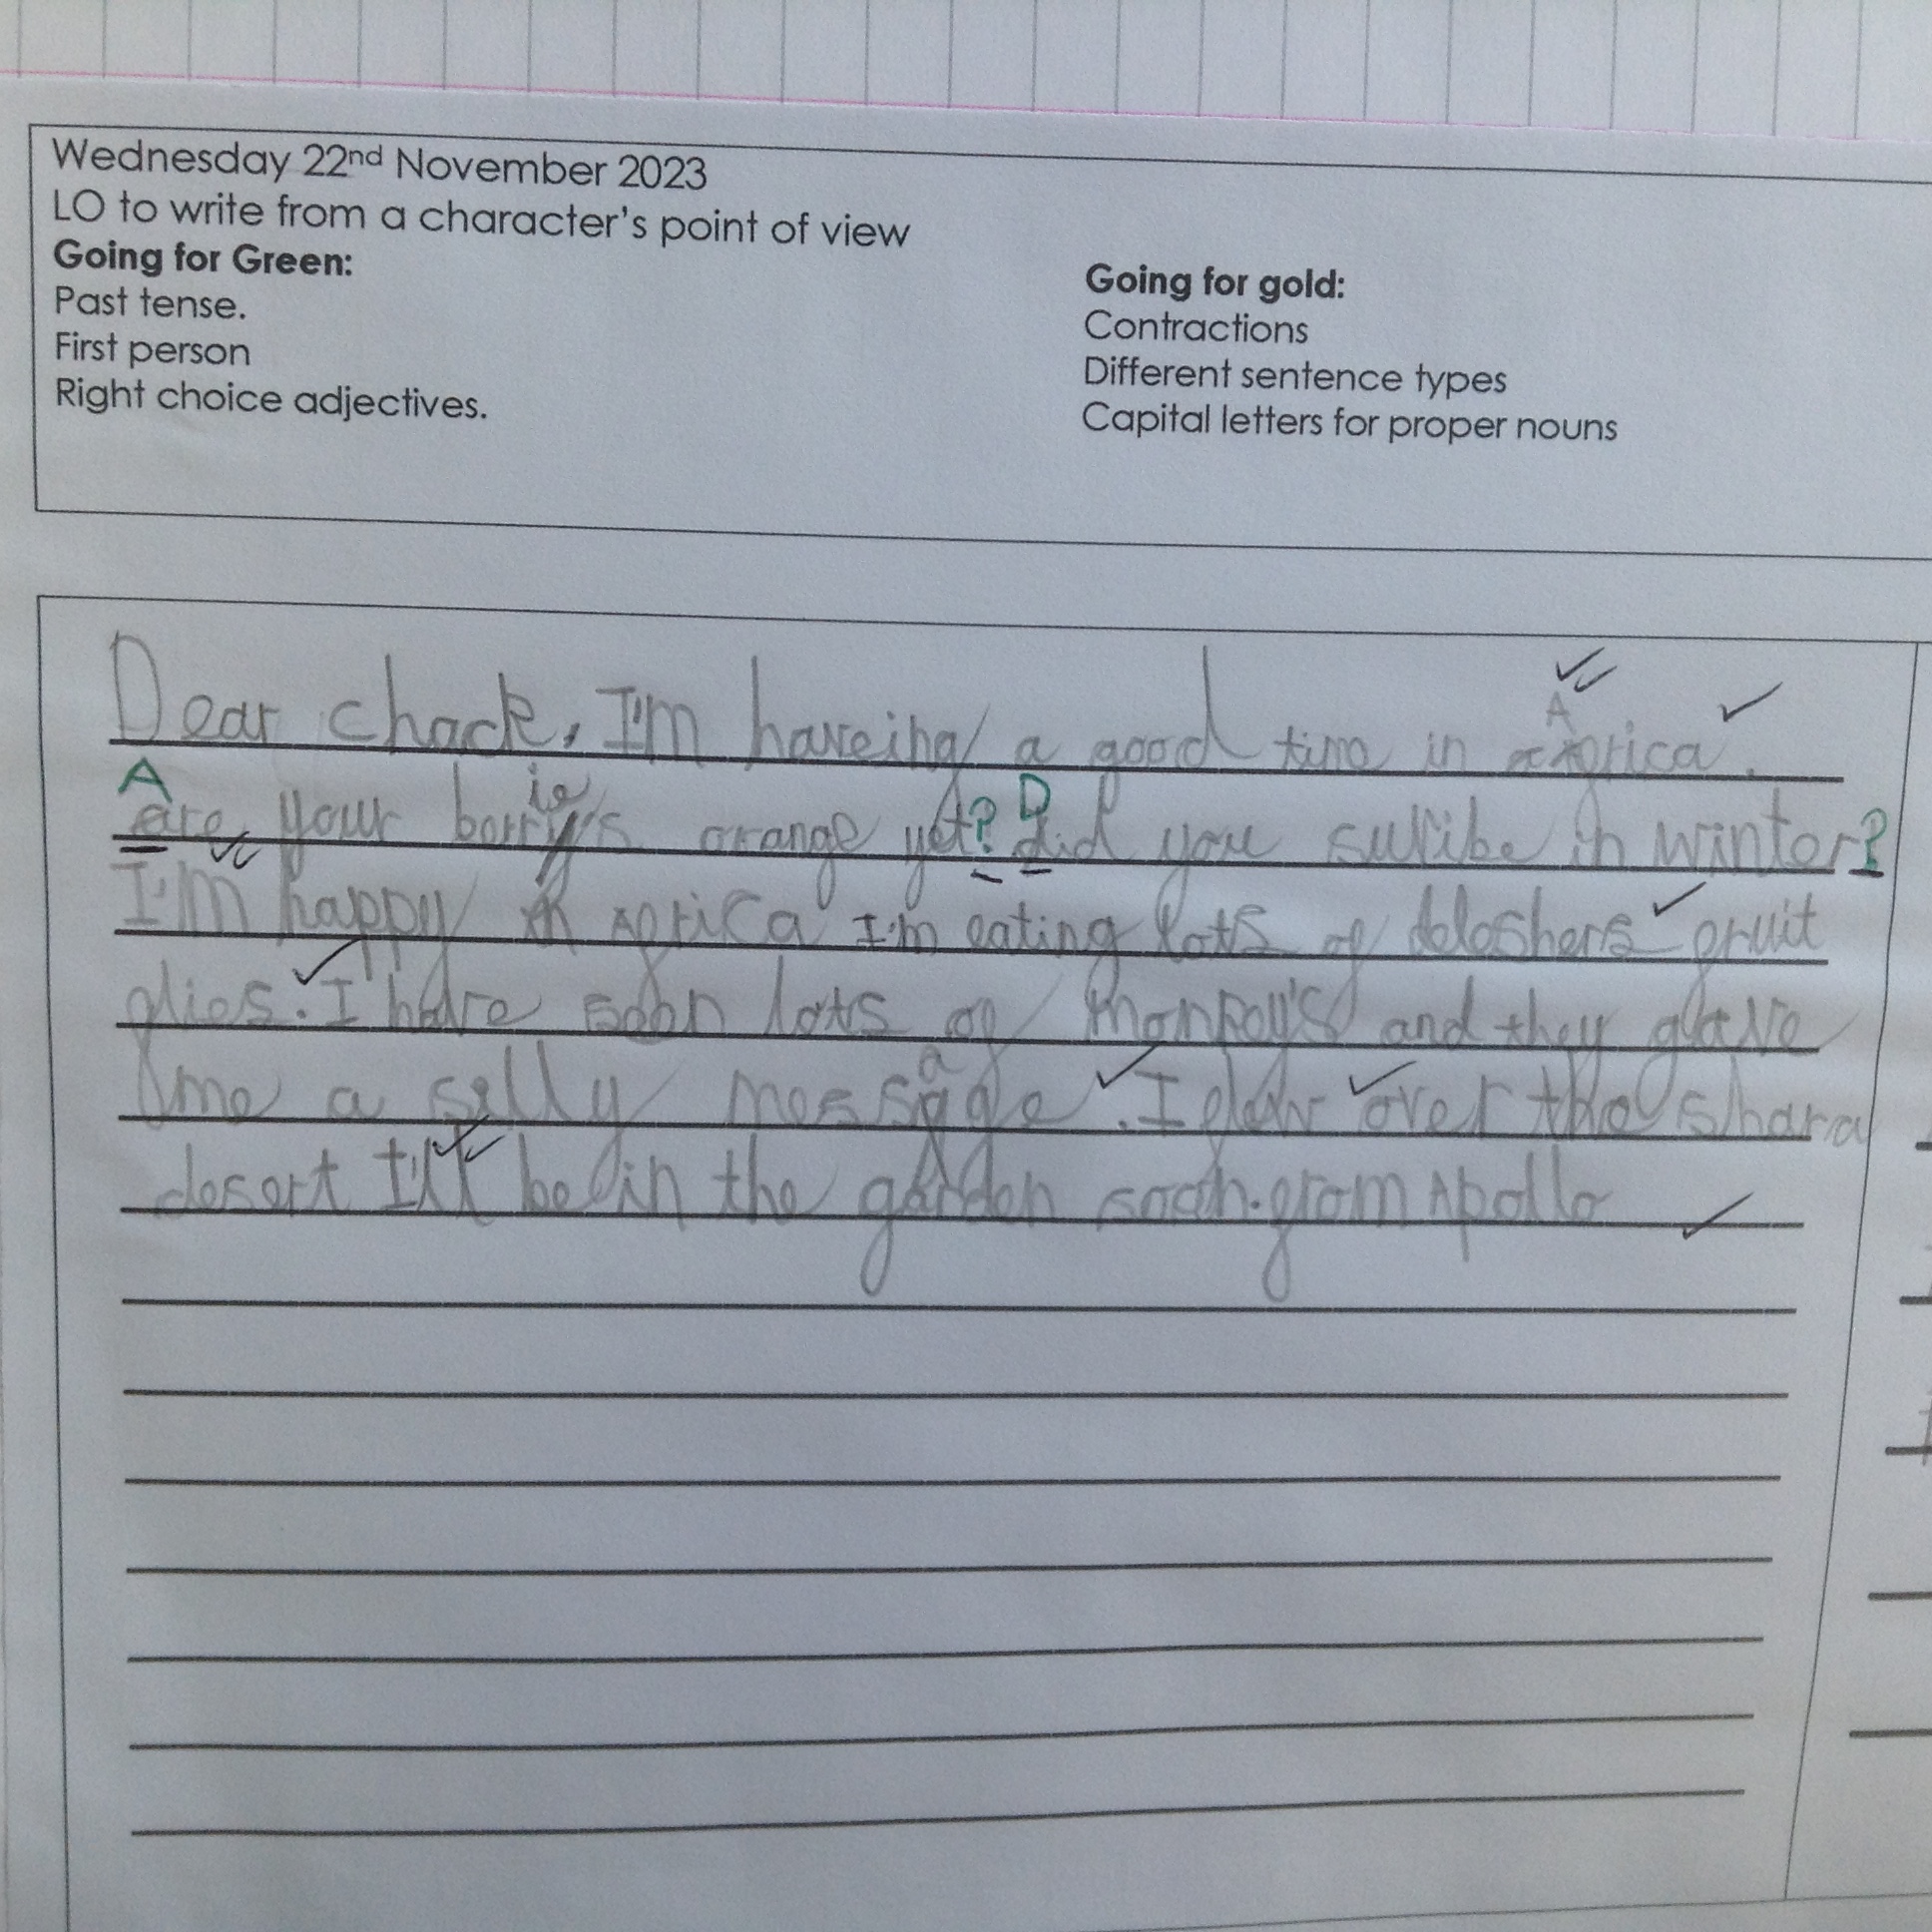 Wednesday 22nd November 2023
LO to write from a character's point of view
Going for Green:
Past tense.
First person
Right choice adjectives.
Going for gold:
Contractions
Different sentence types
Capital letters for proper nouns
Dear chack, I'm haveing a good time in Africa.
Are your berries orange yet? Did you suribe in winter?
I'm happy in Africa I'm eating lots of deloshers fruit
flies. I have seen lots of monkey's and they gave
me a silly message. I flew over the shara
desert I'll be in the garden soon. from Apollo